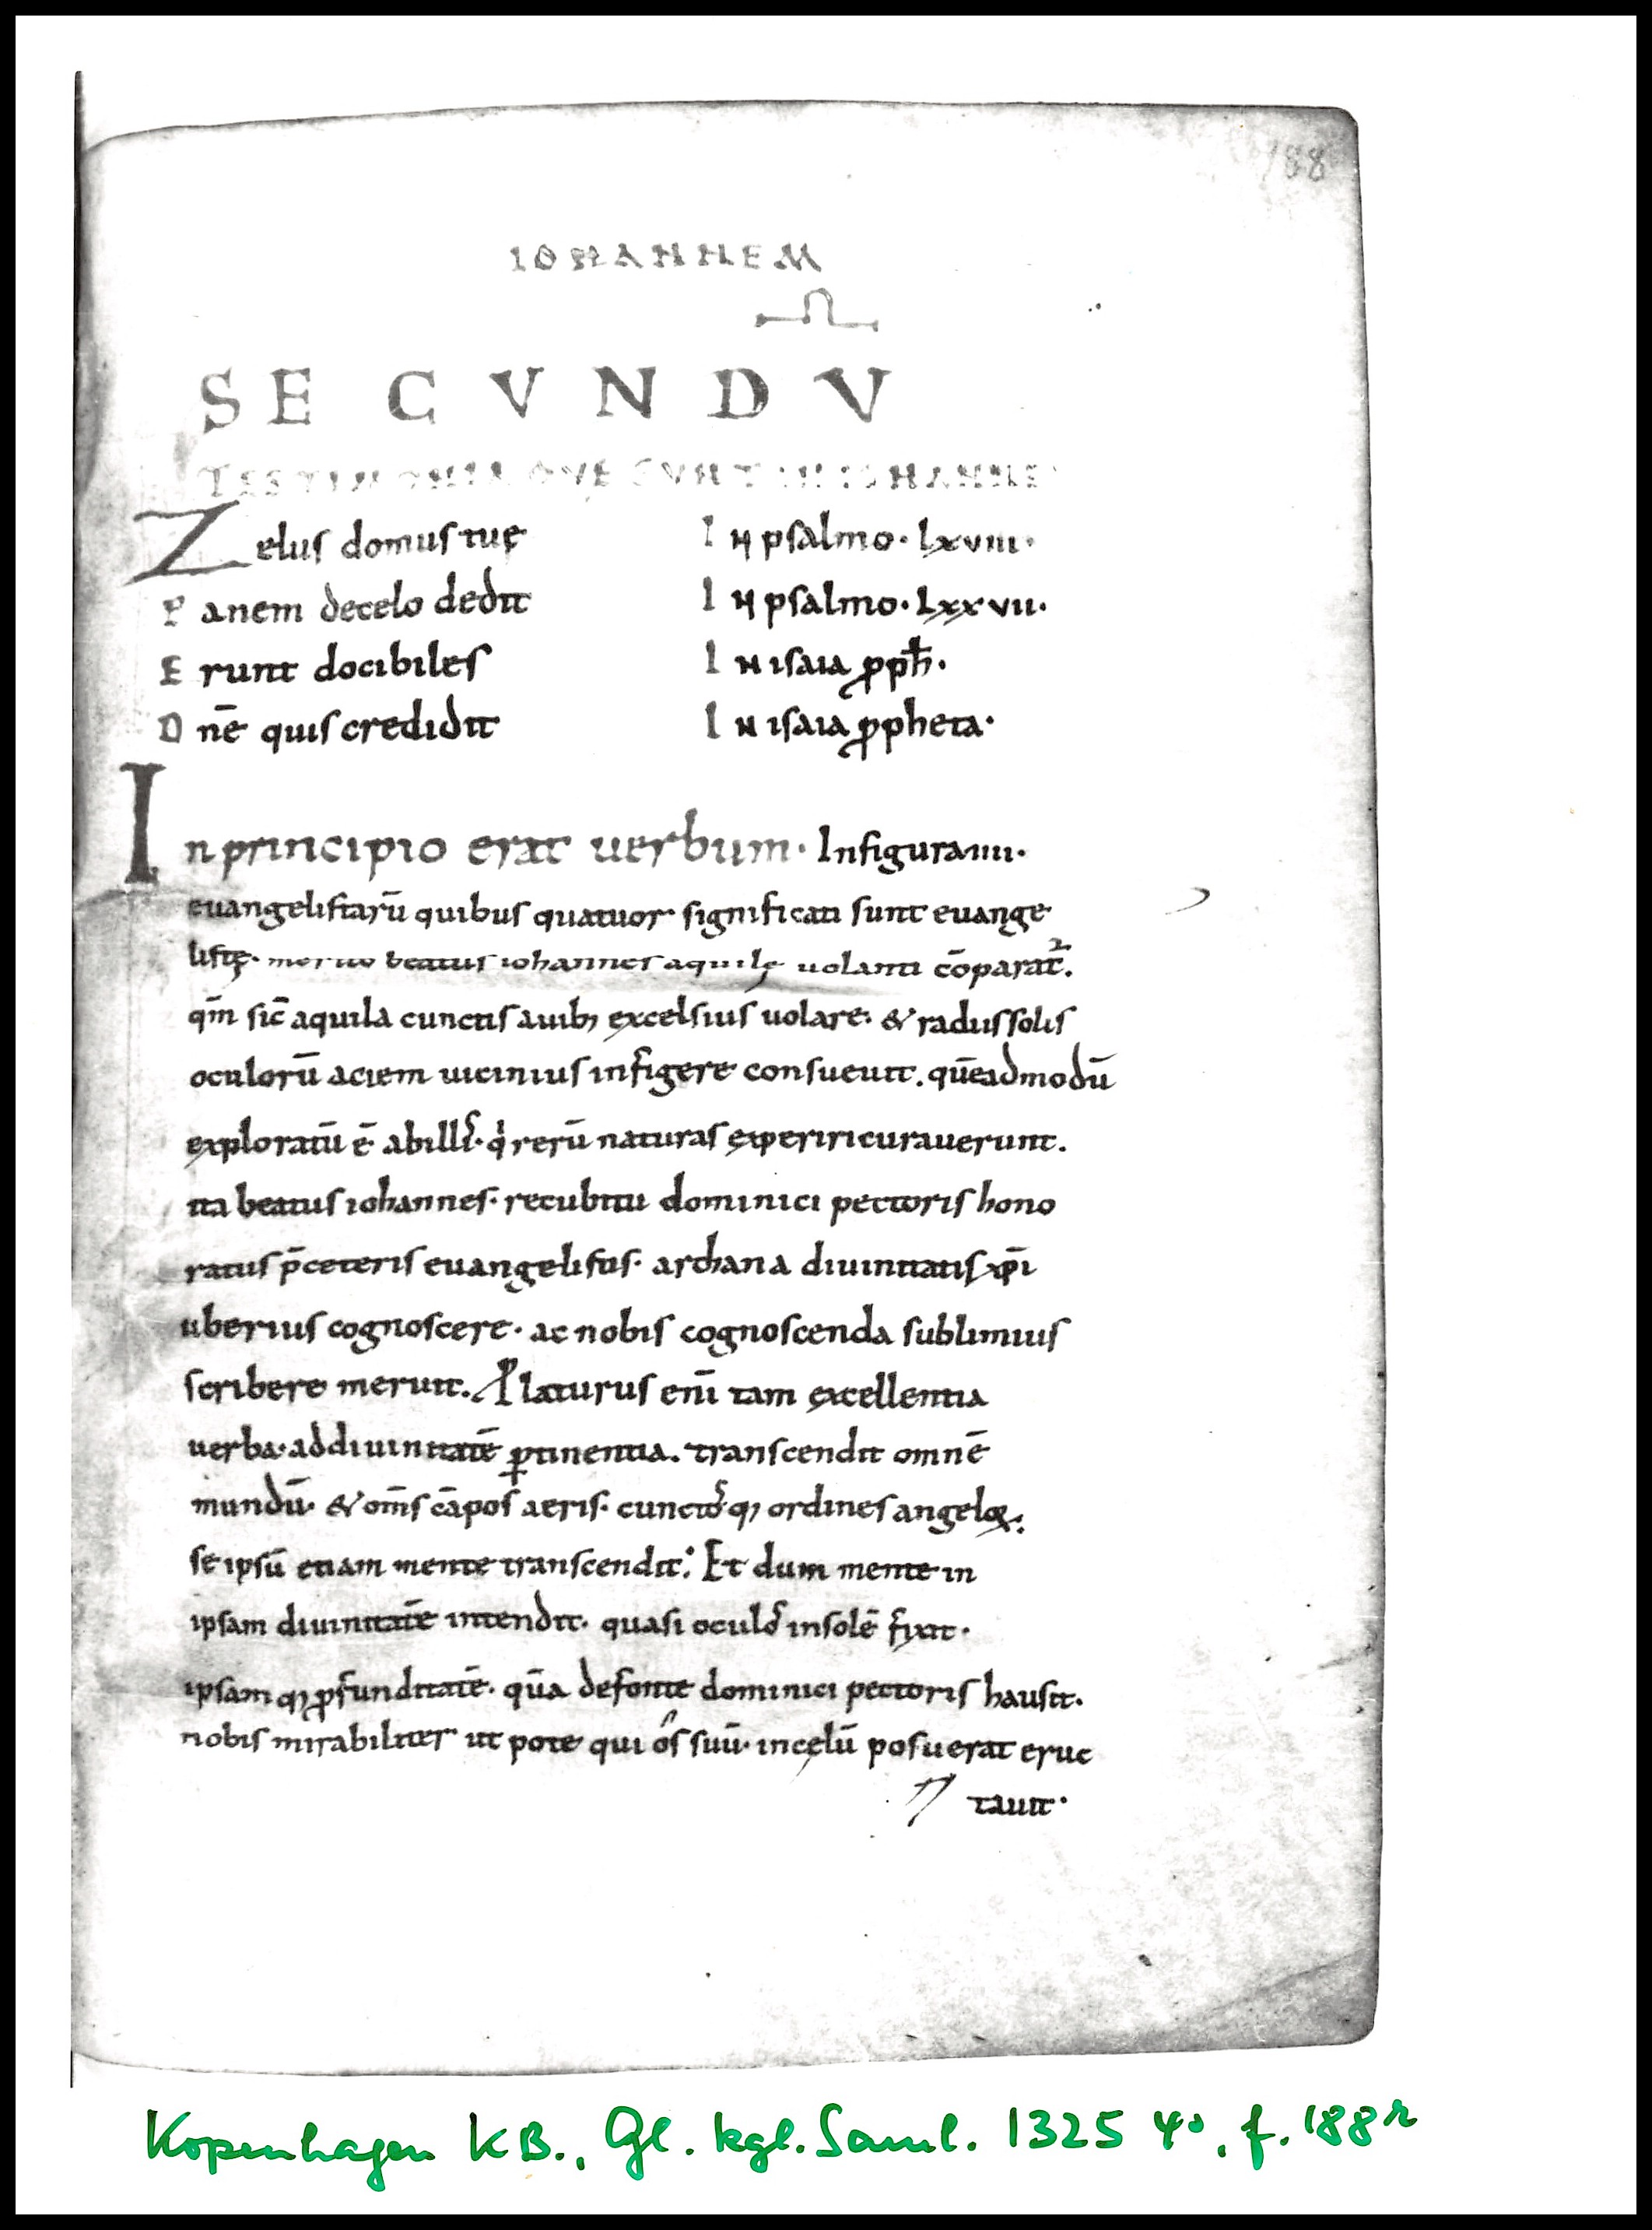 188
IOHANNEM
SECVNDV
TESTIMONIA QVE SVNT IN IOHANNE
Zelus domus tuę In psalmo· lxviii·
Panem decelo dedit In psalmo· Lxxvii·
Erunt docibiles In isaia ꝓph̄·
Dn̄e quis credidit In isaia ꝓpheta·
In principio erat uerbum· Infigurauii·
euangelistarū quibus quatuor significati sunt euange
listę· meruit beatus iohannes aquilę uolanti cōparat᷑.
qm̄ sic̄ aquila cunctis auib; excelsius uolare· & radiis solis
oculorū aciem uicinius infigere consueuit. quēadmodū
exploratū ē abillis· qͥ rerū naturas experiri curauerunt.
ita beatus iohannes· recubitu dominici pectoris hono
ratus p̄ceteris euangelistis· archana diuinitatis xp̄i
uberius cognoscere· ac nobis cognoscenda sublimius
scribere meruit. Platurus eni̅ tam excellentia
uerba· addiuinitatē ꝑtinentia. transcendit omnē
mundū· & om̄s cāpos aeris· cunctosq; ordines angeloꝝ.
se ipsū etiam mente transcendit. Et dum mente in
ipsam diuinitatē intendit· quasi oculos insolē fixit·
ipsamq; ꝓfunditatē· quā defonte dominici pectoris hausit·
nobis mirabiliter ut pote qui os suū· incęlū posuerat eruc
tauit·
Kopenhagen KB., Gl. kgl. Saml. 1325 4°, f. 188r